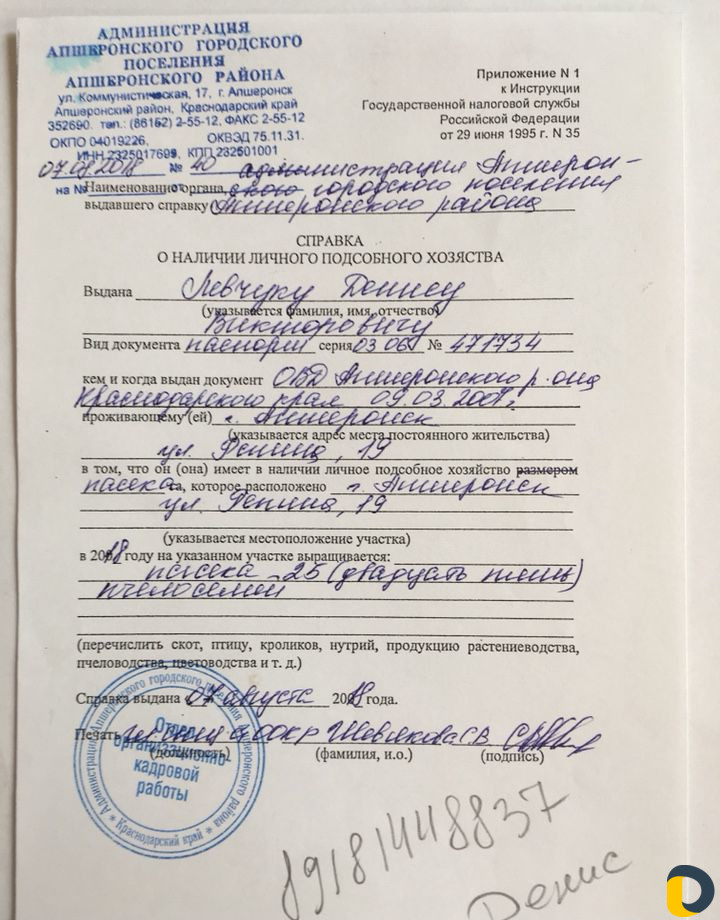 АДМИНИСТРАЦИЯ
АПШЕРОНСКОГО ГОРОДСКОГО
ПОСЕЛЕНИЯ
АПШЕРОНСКОГО РАЙОНА
ул. Коммунистическая, 17, г. Апшеронск
Апшеронский район, Краснодарский край
352690. тел.: (86152) 2-55-12, ФАКС 2-55-12
ОКПО 04019226, ОКВЭД 75.11.31.
ИНН 2325017699, КПП 232501001
07.08.2018 № 40
на №
Приложение N 1
к Инструкции
Государственной налоговой службы
Российской Федерации
от 29 июня 1995 г. N 35
администрация Апшерон-
Наименование органа, ского городского поселения
выдавшего справку Апшеронского района
СПРАВКА
О НАЛИЧИИ ЛИЧНОГО ПОДСОБНОГО ХОЗЯЙСТВА
Выдана Левчуку Денису
(указывается фамилия, имя, отчество)
Викторовичу
Вид документа паспорт серия 03 06 № 471734
кем и когда выдан документ ОВД Апшеронского р-она
Краснодарского края 09.03.
проживающему (ей) г. Апшеронск
(указывается адрес места постоянного жительства)
ул. Репина, 19
в том, что он (она) имеет в наличии личное подсобное хозяйство размером
пасека та, которое расположено г. Апшеронск
ул. Репина, 19
(указывается местоположение участка)
в 2018 году на указанном участке выращивает:
пасека - 25 (двадцать пять)
пчелосемей
(перечислить скот, птицу, кроликов, нутрий, продукцию растениеводства,
пчеловодства, цветоводства и т. д.)
Справка выдана 07 августа 2018 года.
Печать Шевякова С.В.
(должность) (фамилия, и.о.) (подпись)
Администрация Апшеронского городского поселения Апшеронского района
* Краснодарский край *
Отдел
организационно
кадровой
работы
89181448837
Денис